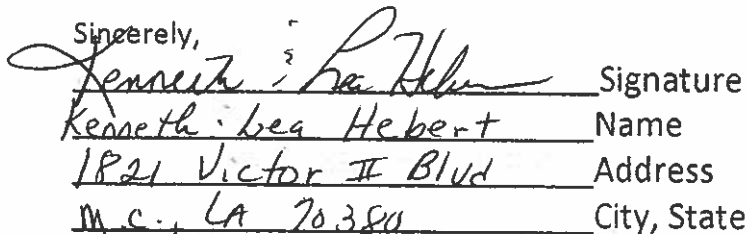 Sincerely,
Kenneth & Lea Hebert Signature
Kenneth & Lea Hebert Name
1821 Victor II Blvd Address
M.C., LA 70380 City, State